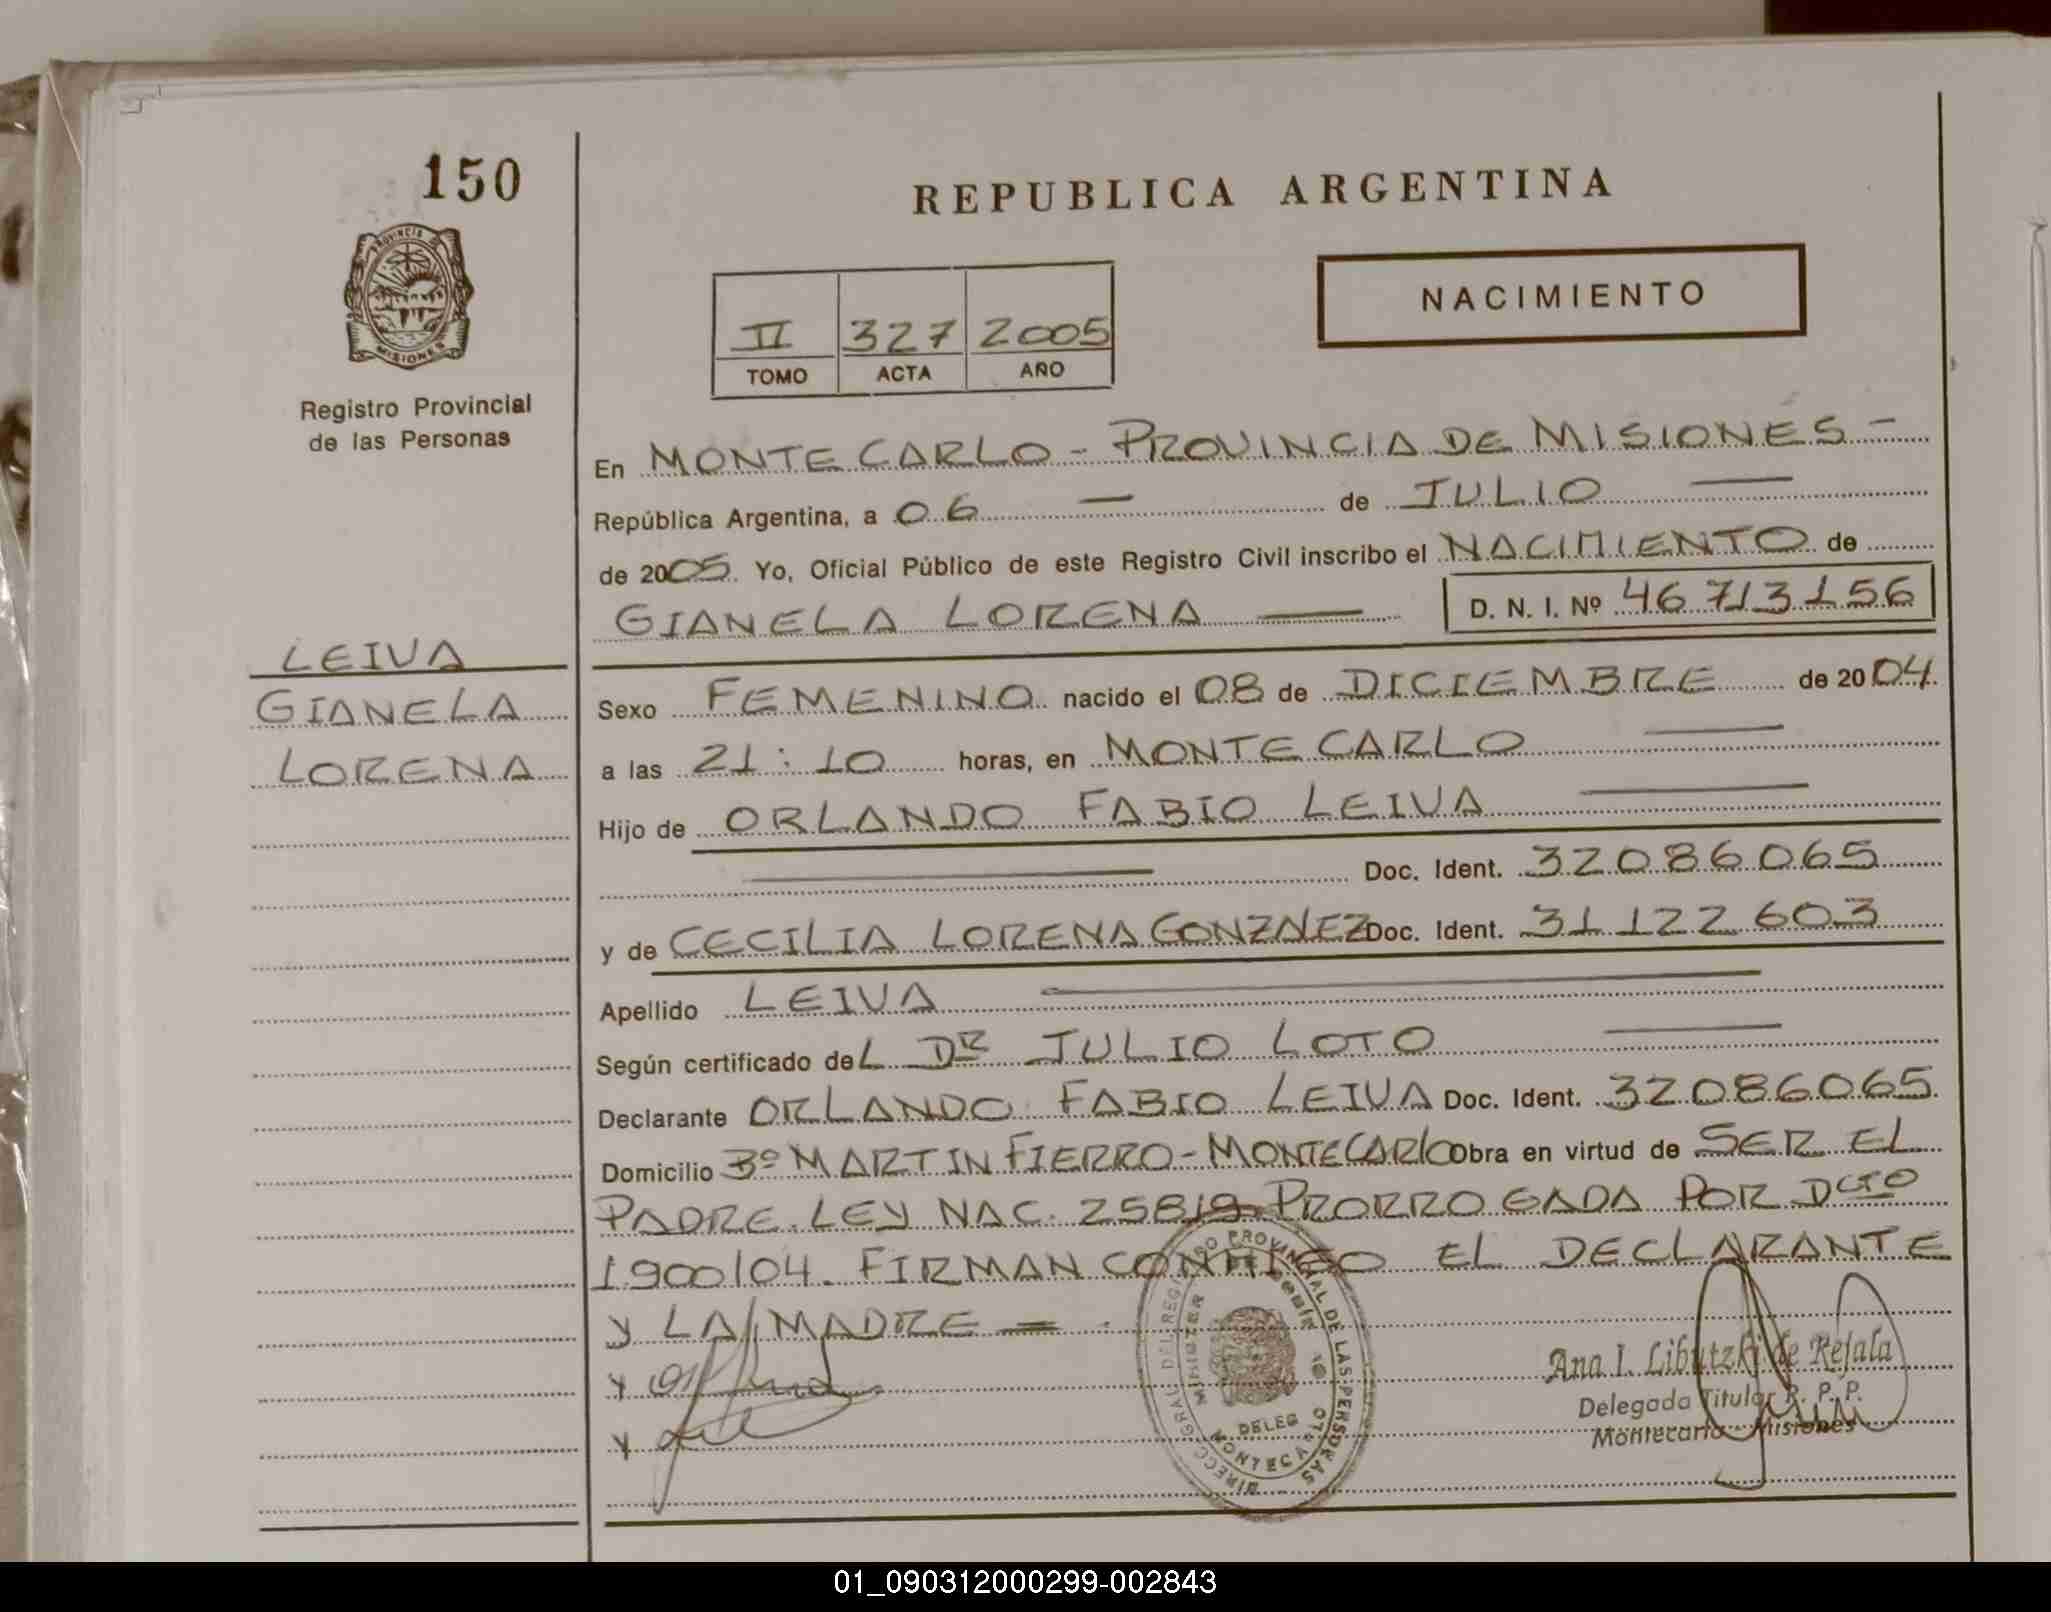 150
PROVINCIA
MISIONES
Registro Provincial
de las Personas
REPUBLICA ARGENTINA
II 327 2005
TOMO ACTA AÑO
NACIMIENTO
En MONTECARLO - PROVINCIA DE MISIONES -
República Argentina, a 06 — de JULIO —
de 2005. Yo, Oficial Público de este Registro Civil inscribo el NACIMIENTO de
GIANELA LORENA — D. N. I. Nº 46713156
LEIVA
GIANELA
LORENA
Sexo FEMENINO nacido el 08 de DICIEMBRE de 2004
a las 21:10 horas, en MONTECARLO —
Hijo de ORLANDO FABIO LEIVA —
— Doc. Ident. 32086065
y de CECILIA LORENA GONZALEZ Doc. Ident. 31122603
Apellido LEIVA —
Según certificado deL DR JULIO LOTO —
Declarante ORLANDO FABIO LEIVA Doc. Ident. 32086065
Domicilio Bº MARTIN FIERRO - MONTECARLO obra en virtud de SER EL
PADRE. LEY NAC. 25819 PRORROGADA POR DCTO
1900/04. FIRMAN CONMIGO EL DECLARANTE
y LA MADRE =
DIRECC. GRAL. DEL REGISTRO PROVINCIAL DE LAS PERSONAS
DELEG
MONTECARLO
Ana I. Libutzki de Refala
Delegada Titular R. P. P.
Montecarlo - Misiones
01_090312000299-002843